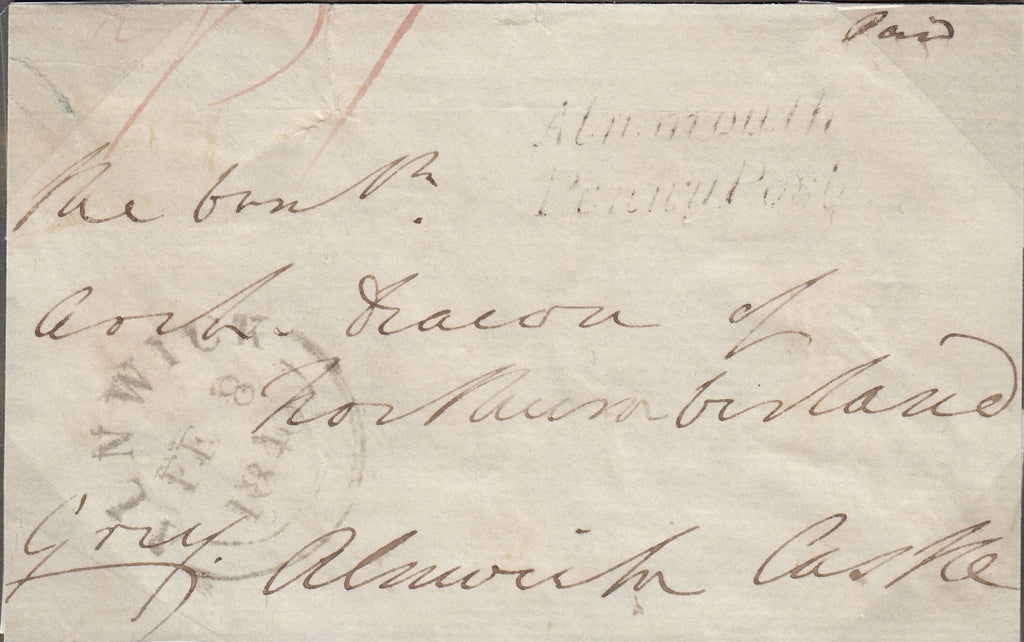 Paid
Alnmouth
Penny Post
The
Arch. Deacon of
Northumberland
ALNWICK
FE 8
184
Grey. Alnwick Castle